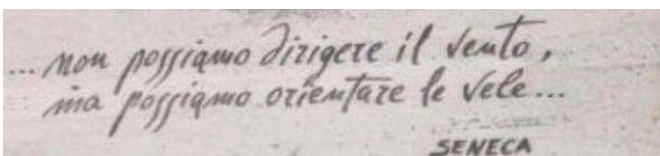 ... non possiamo dirigere il vento,
ma possiamo orientare le vele...
SENECA